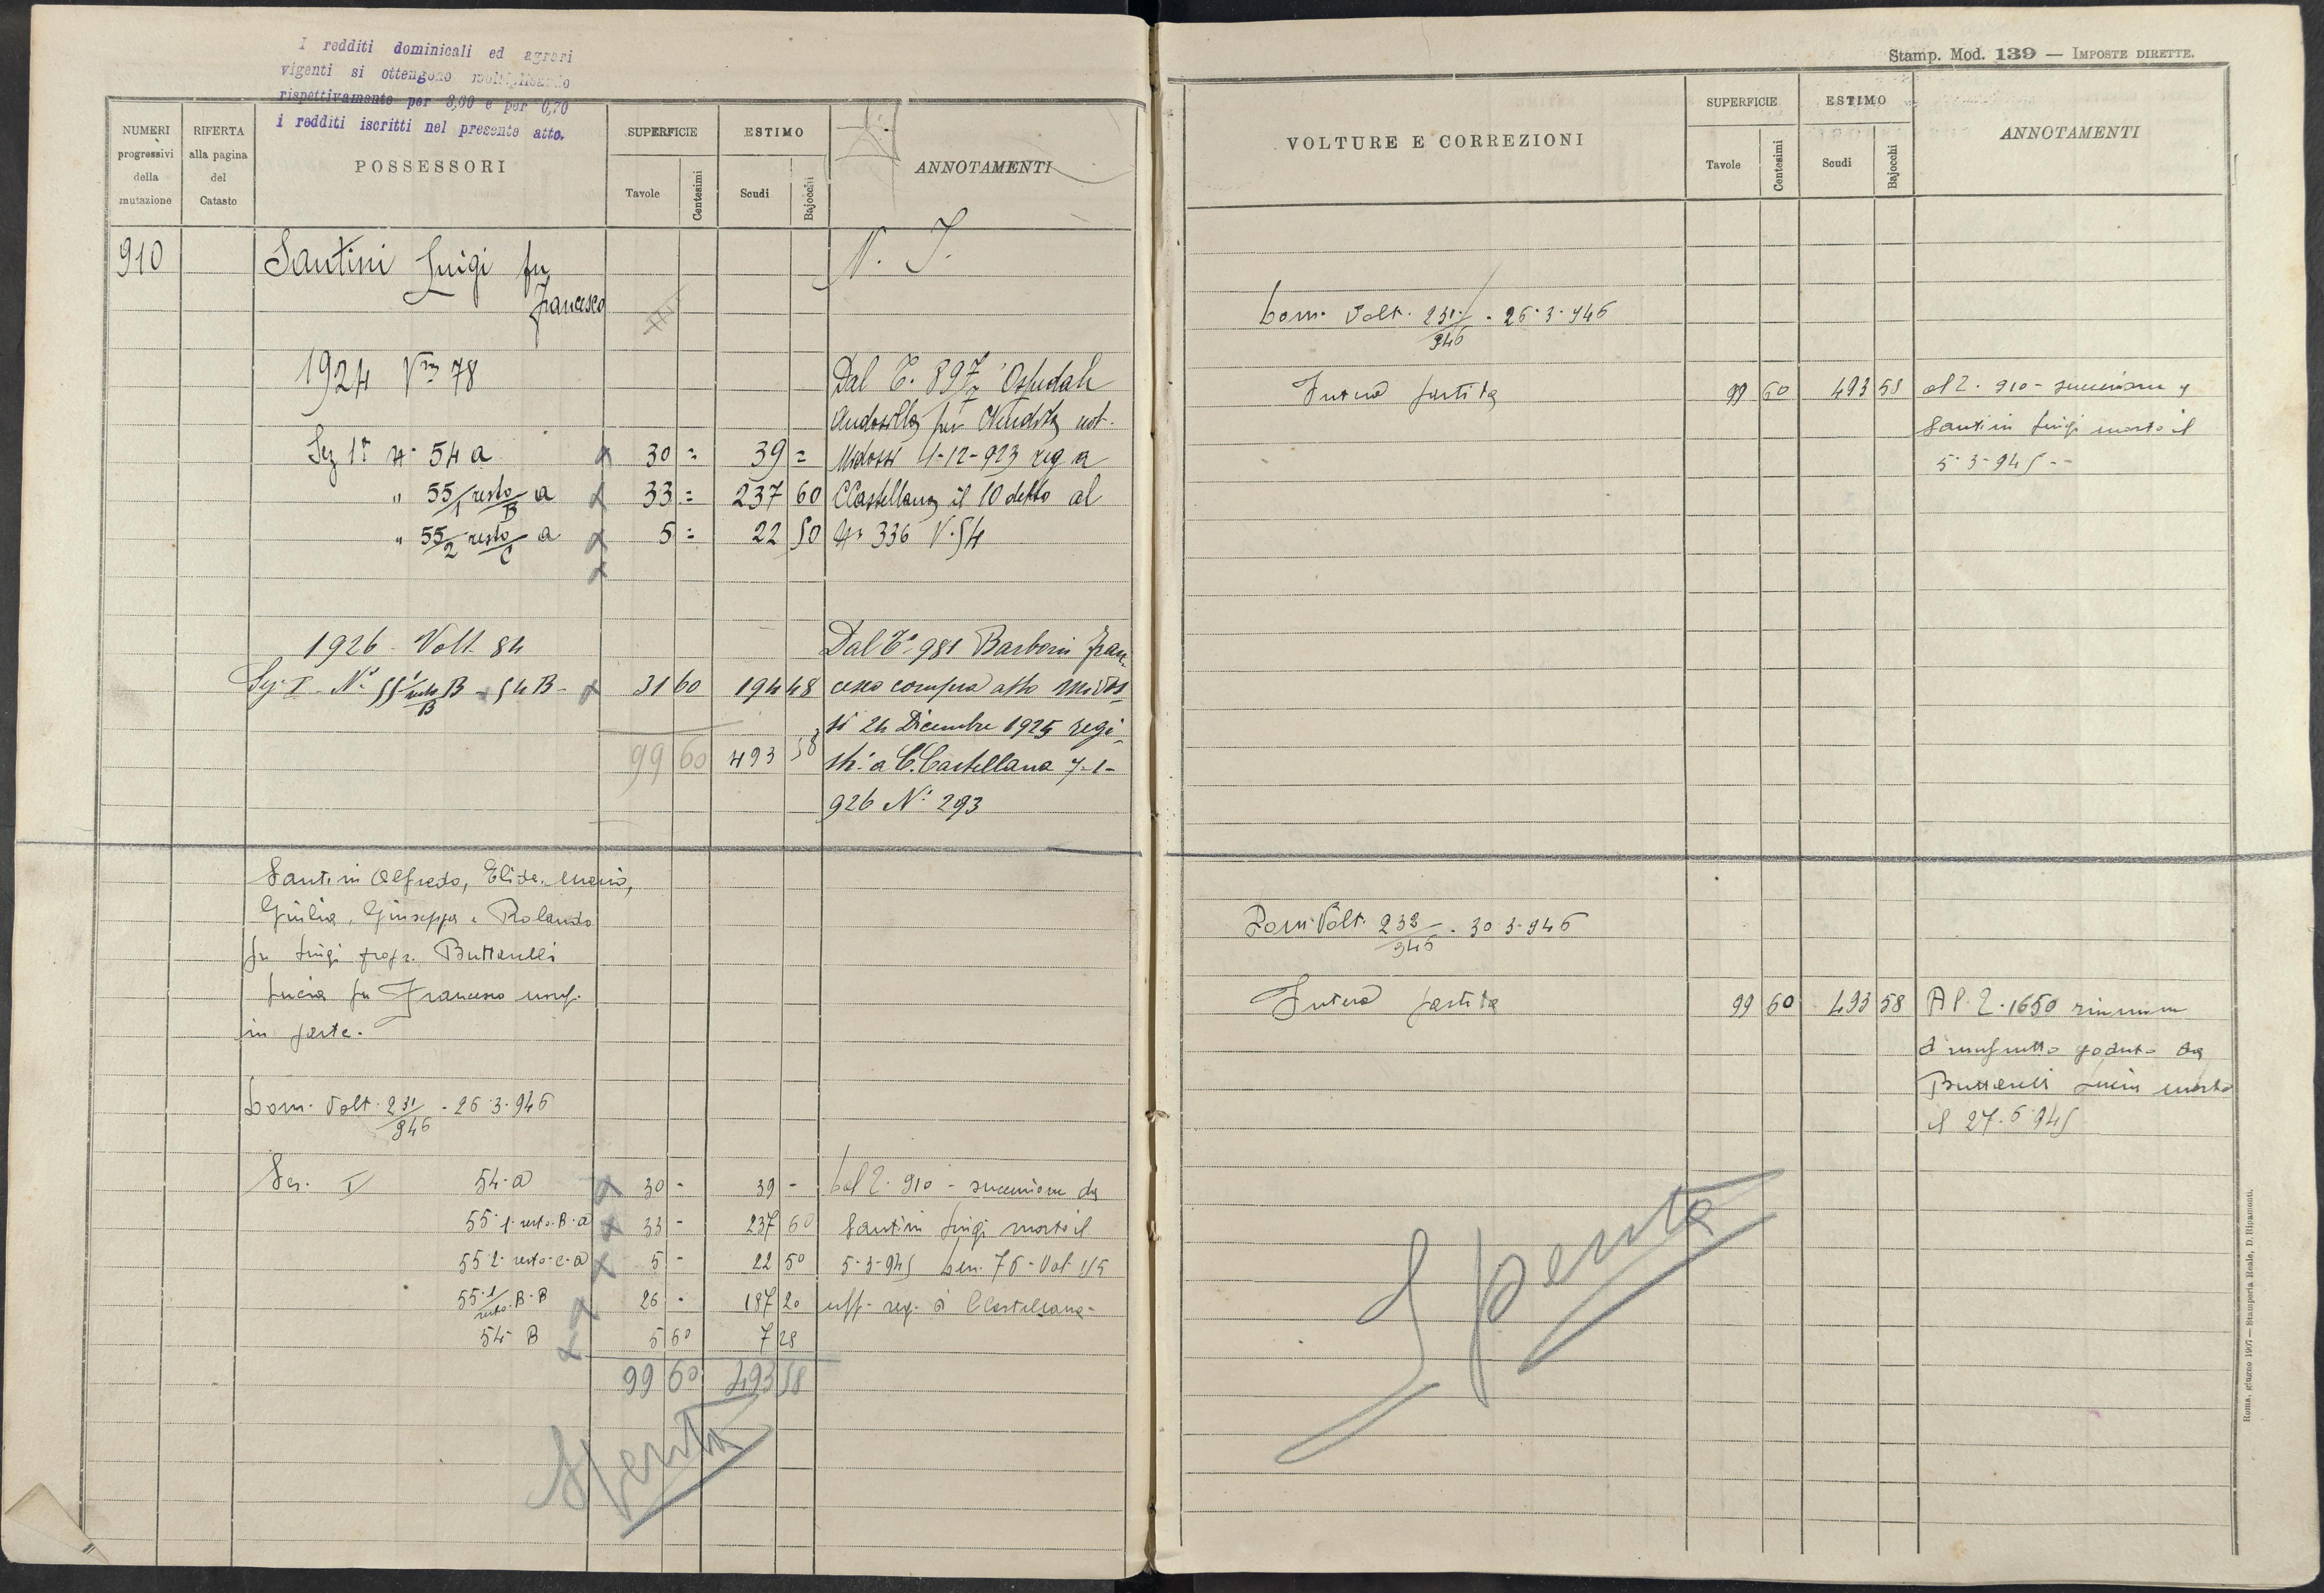 I redditi dominicali ed agrari
vigenti si ottengono moltiplicando
rispettivamente per 3,60 e per 0,70
i redditi iscritti nel presente atto.
NUMERI progressivi della mutazione
RIFERTA alla pagina del Catasto
POSSESSORI
SUPERFICIE
Tavole Centesimi
ESTIMO
Scudi Bajocchi
ANNOTAMENTI
910 Santini Luigi fu N. I.
Francesco
1924 Vra 78 Dal C. 897 Ospedale
Andosilla per Vendita not.
Sez 1ª N. 54 a 30 = 39 = Midossi 4-12-923 reg a
" 55/1 resto/B a 33 = 237 60 CCastellana il 10 detto al
" 55/2 resto/C a 5 = 22 50 N. 336 V. 54
1926 - Volt. 84 Dal C. 981 Barboni Fran
Sez. I - Nº 55 1/resto/B B - 54 B - 31 60 194 48 cesco compra atto Midos
si 24 Dicembre 1925 regi
99 60 493 58 str. a C. Castellana 7-1-
926 Nº 293
Santini Alfredo, Elide, Mario,
Giulia, Giuseppa e Rolando
fu Luigi propr. Buttarelli
Lucia fu Francesco usuf.
in parte.
Dom. Volt. 231/946 - 26.3.946
Sez. I 54. a 30 - 39 - Dal C. 910 - successione da
55.1. resto. B. a 33 - 237 60 Santini Luigi morto il
55 2. resto. C. a 5 - 22 50 5-3-945 den. 76 - Vol 115
55.1/resto. B. B 26 - 187 20 uff. reg. di CCastellana -
54 B 5 60 7 28
99 60 493 58
Spenta
Stamp. Mod. 139 — IMPOSTE DIRETTE.
VOLTURE E CORREZIONI
SUPERFICIE
Tavole Centesimi
ESTIMO
Scudi Bajocchi
ANNOTAMENTI
Dom. Volt. 231/946 - 26.3.946
Intera partita 99 60 493 58 al C. 910 - successione di
Santini Luigi morto il
5-3-945 --
Dom. Volt. 232/946 - 30.3.946
Intera partita 99 60 493 58 Al C. 1650 riunione
d'usufrutto goduto da
Buttarelli Lucia morta
il 27.6.945
Spenta
Roma, giugno 1907 — Stamperia Reale, D. Ripamonti.